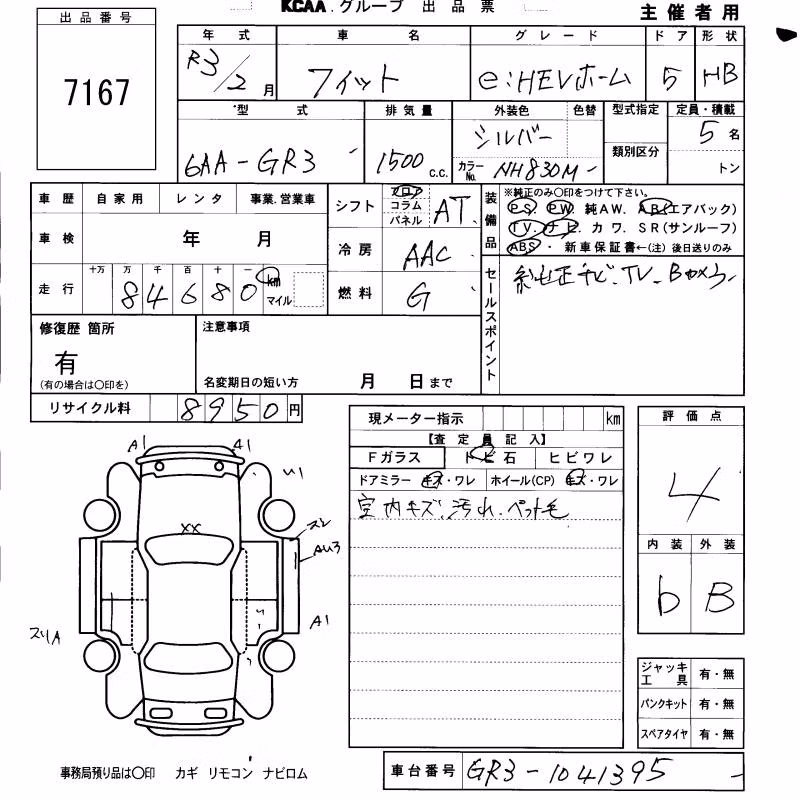 KCAA.グループ 出品票
主催者用
出品番号
7167
年式 車名 グレード ドア 形状
R3/2月 フィット e:HEVホーム 5 HB
型式 排気量 外装色 色替 型式指定 定員・積載
6AA-GR3 1500 c.c. シルバー 5名
カラーNo. NH830M 類別区分 トン
車歴 自家用 レンタ 事業.営業車
車検 年 月
走行 十万 万 千 百 十 一
84680 km マイル
シフト フロア コラム パネル AT
冷房 AAC
燃料 G
装備品 ※純正のみ○印をつけて下さい。
P.S. P.W. 純AW. A.B(エアバック)
T.V. ナビ カワ. SR(サンルーフ)
ABS・ 新車保証書←(注) 後日送りのみ
セールスポイント
純正ナビ.TV.Bカメラ
修復歴 箇所 注意事項
有
(有の場合は○印を) 名変期日の短い方 月 日まで
リサイクル料 8950円
現メーター指示 km
【査定員記入】
Fガラス トビ石 ヒビワレ
ドアミラー キズ・ワレ ホイール(CP) キズ・ワレ
室内キズ.汚れ.ペット毛
評価点
4
内装 外装
b B
A1 A1
U1
XX
スレ
AU3
A1
スリA
ジャッキ工具 有・無
パンクキット 有・無
スペアタイヤ 有・無
事務局預り品は○印 カギ リモコン ナビロム
車台番号 GR3-1041395